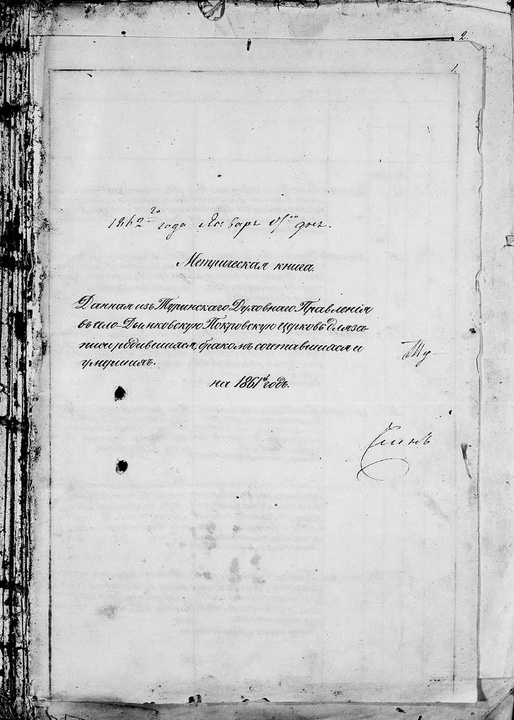 2.
1.
1862го года Января 15го дня.
Метрическая книга.
Данная изъ Туринскаго Духовнаго Правленія
въ село Дымковскую Покровскую церковь для за-
писи родившихся, бракомъ сочетавшихся и
умершихъ.
на 1861й годъ.